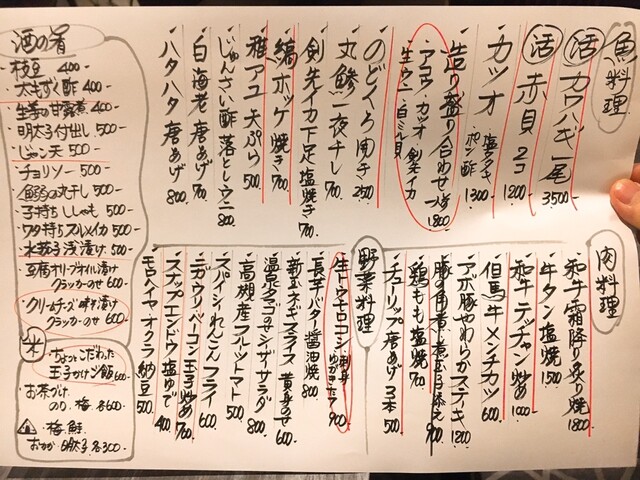 魚料理
活 カワハギ一尾 3500
活 赤貝 2コ 1200
カツオ 塩タタキ ポン酢 1300
造り盛り合わせ 一人前 1800
アコウ カツオ 剣先イカ
生ウニ 白ミル貝
のどぐろ開き 2500
丸鯵一夜干し 700
剣先イカ下足塩焼き 700
縞ホッケ焼き 700
稚アユ天ぷら 500
じゅんさい酢 落としウニ 800
白海老唐あげ 700
ハタハタ唐あげ 800
肉料理
和牛霜降り炙り焼 1800
牛タン塩焼 1500
和牛テッチャン炒め 1000
但馬牛メンチカツ 600
アボ豚やわらかステーキ 1200
豚の角煮、煮玉子添え 900
鶏もも塩焼 700
チューリップ唐あげ 3本 500
野菜料理
生トウモロコシ 刺身 ゆがきたて 900
長芋バター醤油焼 800
新玉ネギスライス 黄身のせ 600
温泉タマゴのせシーザーサラダ 800
高槻産フルーツトマト 500
スパイシーれんこんフライ 600
ニガウリ・ベーコン玉子炒め 700
スナップエンドウ塩ゆで 400
モロヘイヤ・オクラ納豆 500
酒の肴
・枝豆 400-
・太もずく酢 400-
・生姜の甘露煮 400-
・明太子付出し 500-
・じゃこ天 500-
・チョリソー 500-
・丸干し 500-
・子持ちししゃも 500-
・ワタ持ちスルメイカ 500-
・水茄子浅漬け 500-
・豆腐オリーブオイル漬け
クラッカーのせ 600
・クリームチーズ味噌漬け
クラッカーのせ 600
米
・ちょっとこだわった
玉子かけご飯 600
・お茶づけ
のり、梅 各600
・梅、鮭
おかか 明太子 各300